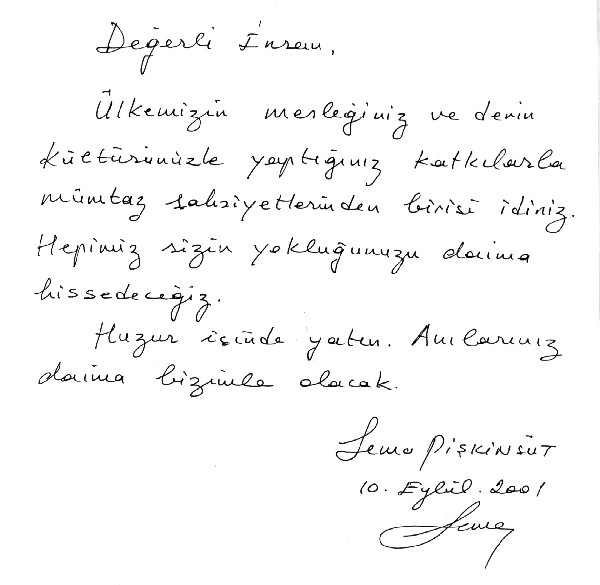 Değerli İnsan,
Ülkemizin mesleğiniz ve derin
kültürünüzle yaptığınız katkılarla
mümtaz şahsiyetlerinden birisi idiniz.
Hepimiz sizin yokluğunuzu daima
hissedeceğiz.
Huzur içinde yatın. Anılarınız
daima bizimle olacak.
Sema PİŞKİNSÜT
10. Eylül. 2001
Sema